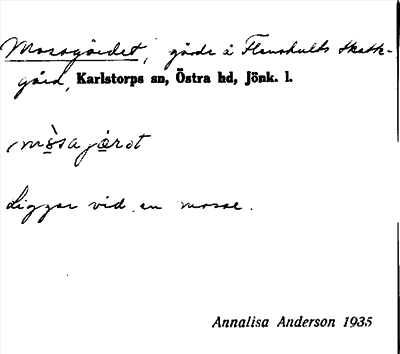 Mossgärdet, gärde å Flenshults skatte-
gård, Karlstorps sn, Östra hd, Jönk. l.
mòsajæ̀rət
Ligger vid en mosse.
Annalisa Anderson 1935